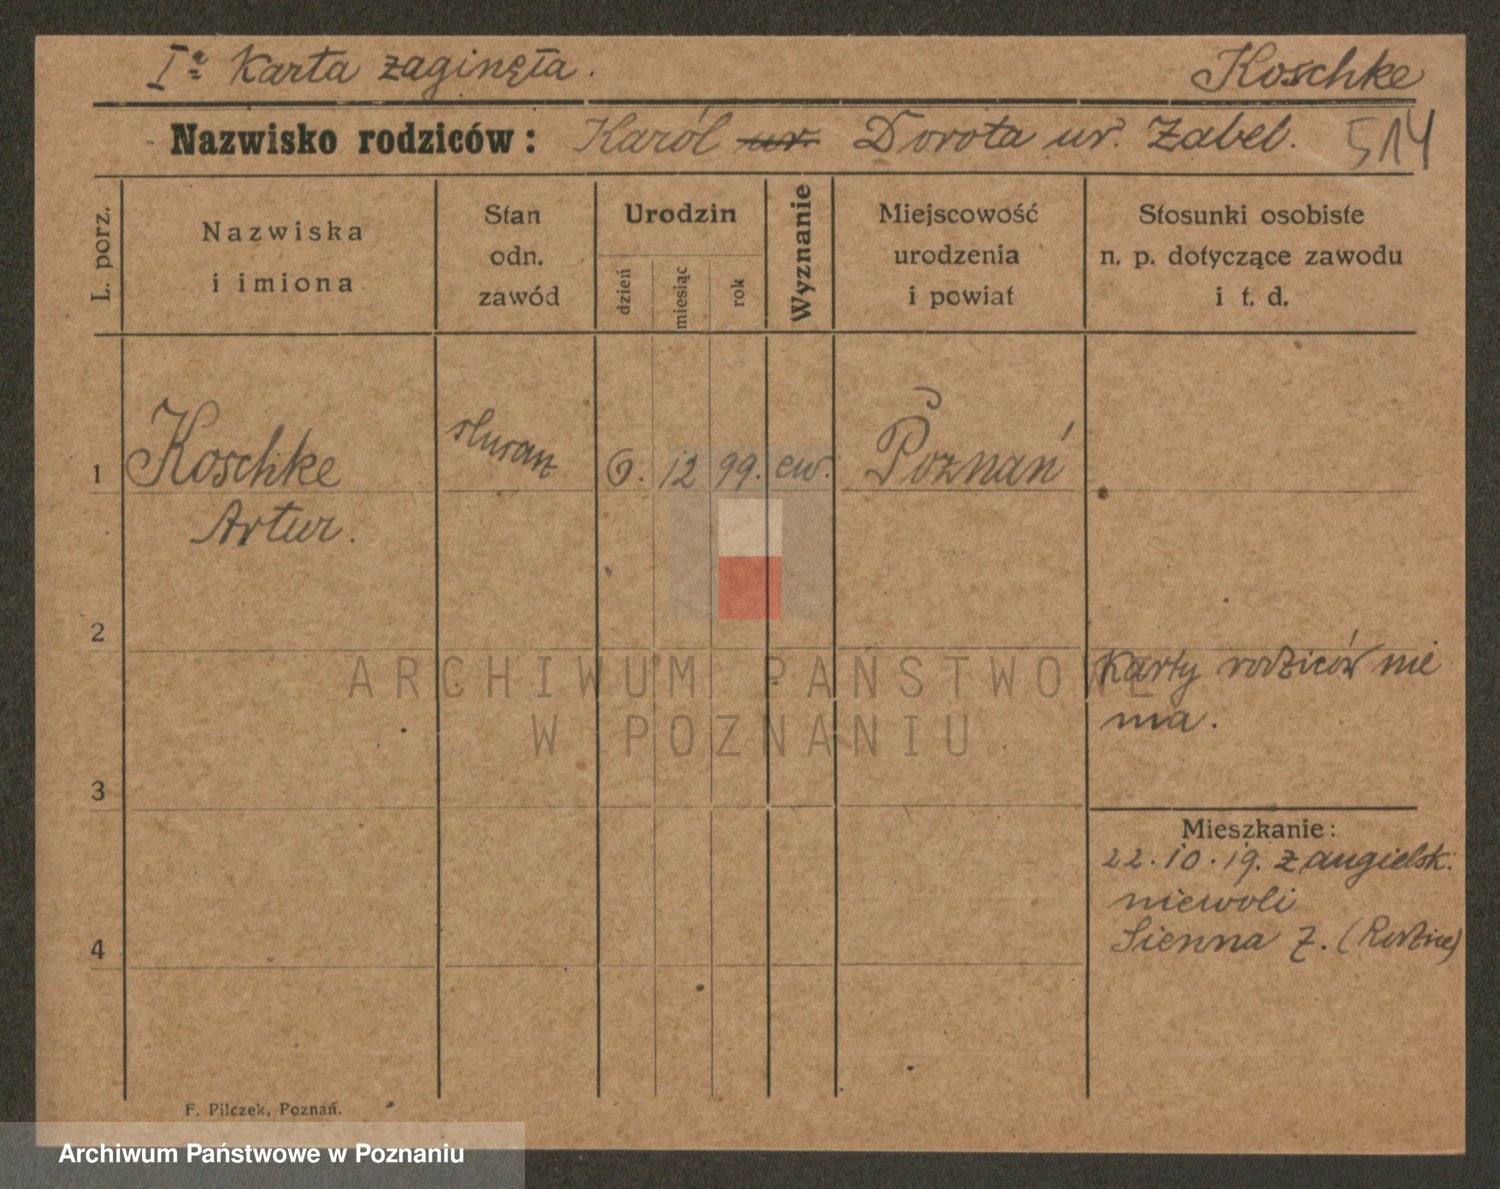 Iª Karta zaginęła. Koschke
Nazwisko rodziców: Karól ur. Dorota ur. Zabel. 514
L. porz.
Nazwiska
i imiona
Stan
odn.
zawód
Urodzin
dzień
miesiąc
rok
Wyznanie
Miejscowość
urodzenia
i powiat
Stosunki osobiste
n. p. dotyczące zawodu
i t. d.
1 Koschke ślusarz 6. 12 99. ew. Poznań
Artur.
2
Karty rodziców nie
ma.
3
Mieszkanie:
22.10.19. z angielsk.
niewoli
4 Sienna 7. (Rodzice)
F. Pilczek, Poznań.
ARCHIWUM PAŃSTWOWE
W POZNANIU
Archiwum Państwowe w Poznaniu